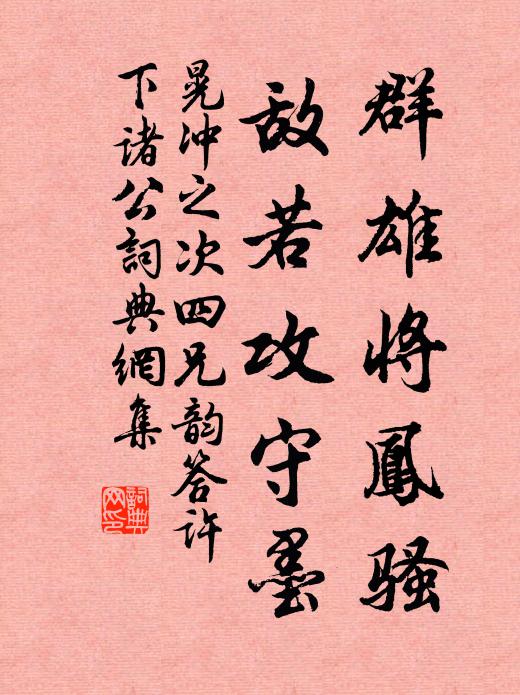 群雄将鳳骚
敌若攻守墨
晁冲之次四兄韵答许
下诸公詞典網集
詞典网印